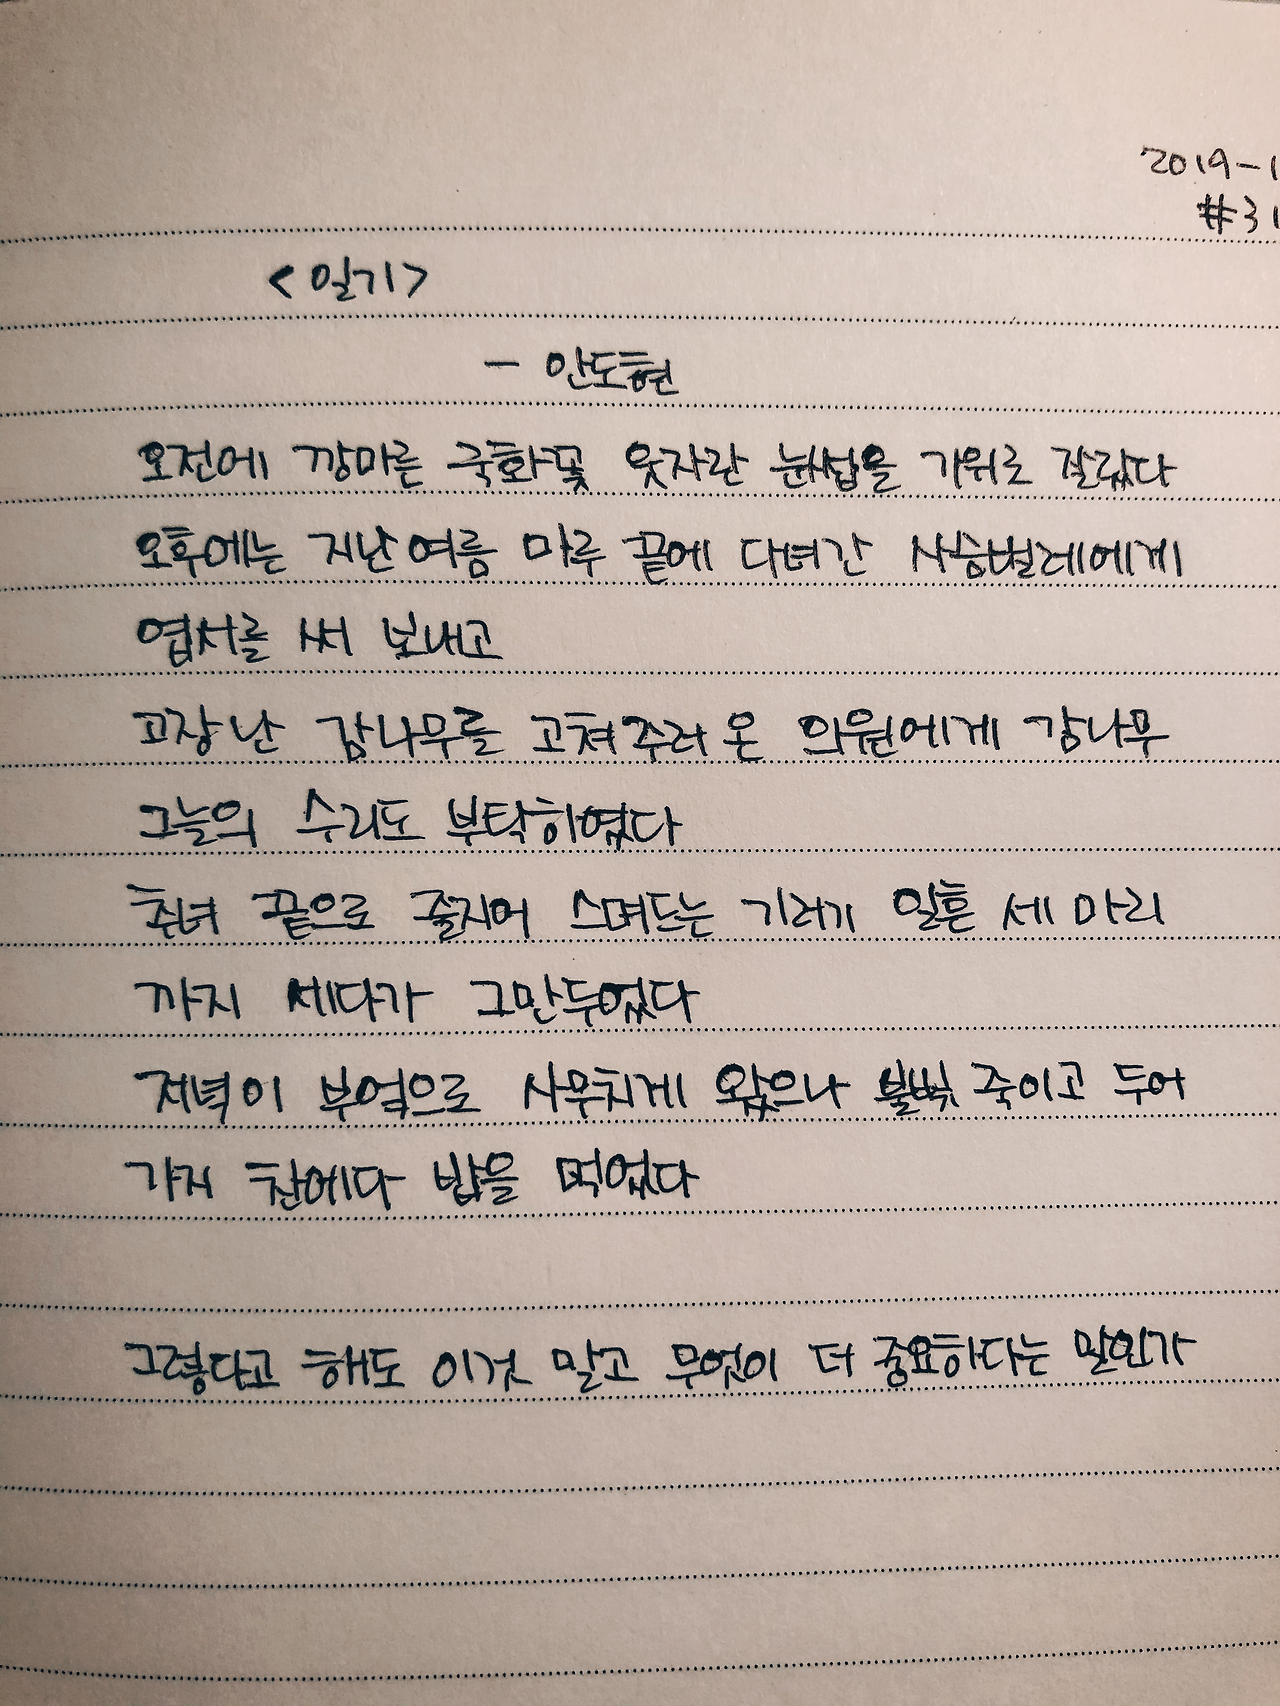 2019-1
#31
<일기>
- 안도현
오전에 깡마른 국화꽃 웃자란 눈썹을 가위로 잘랐다
오후에는 지난여름 마루 끝에 다녀간 사슴벌레에게
엽서를 써 보내고
고장 난 감나무를 고쳐주러 온 의원에게 감나무
그늘의 수리도 부탁하였다
추녀 끝으로 줄지어 스며드는 기러기 일흔 세 마리
까지 세다가 그만두었다
저녁이 부엌으로 사무치게 왔으나 불빛 죽이고 두어
가지 찬에다 밥을 먹었다
그렇다고 해도 이것 말고 무엇이 더 중요하다는 말인가